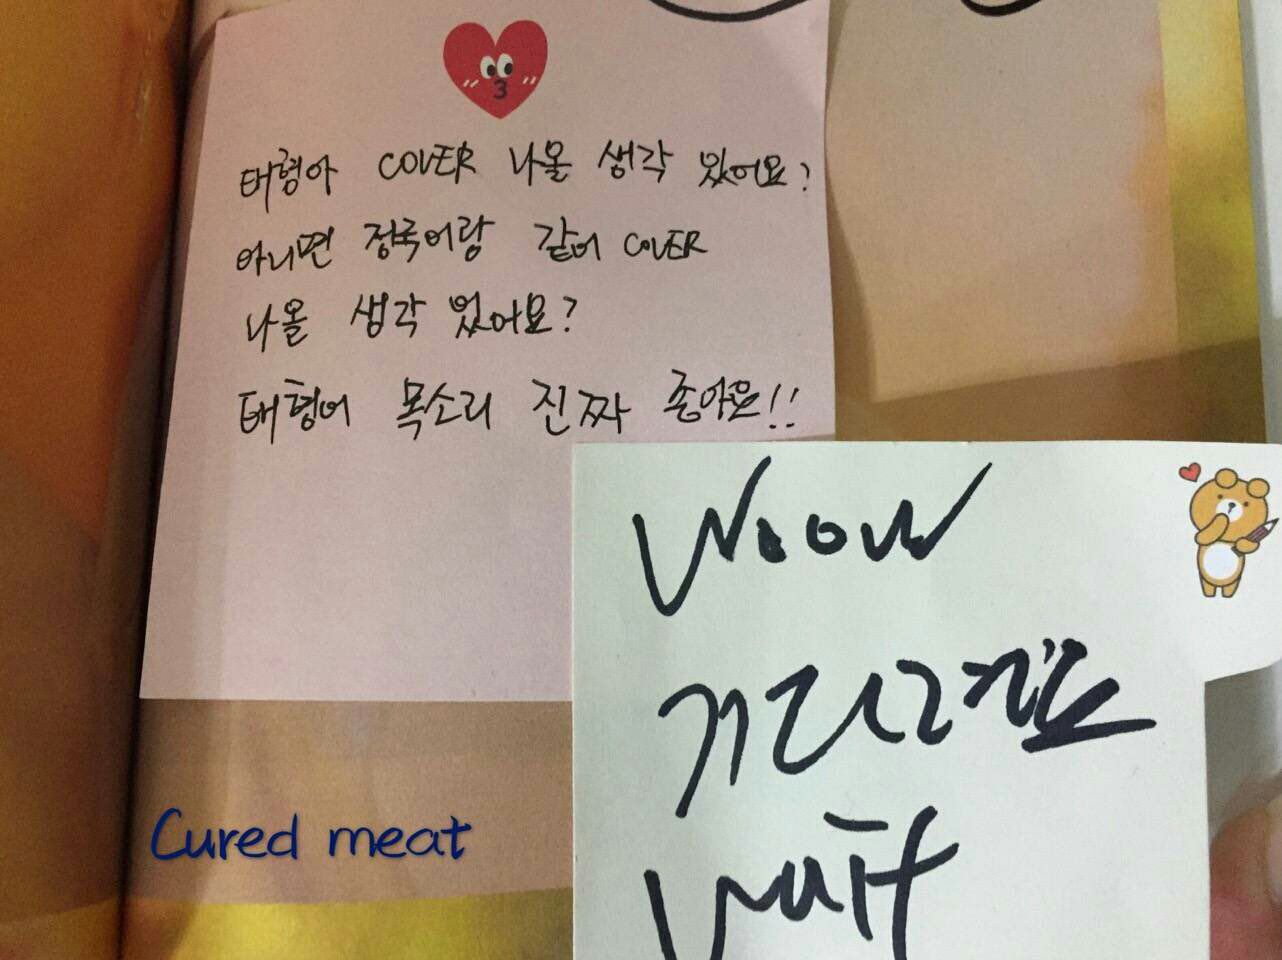 태형아 COVER 나올 생각 있어요?
아니면 정국이랑 같이 COVER
나올 생각 있어요?
태형이 목소리 진짜 좋아요!!
Woow
wait
Cured meat